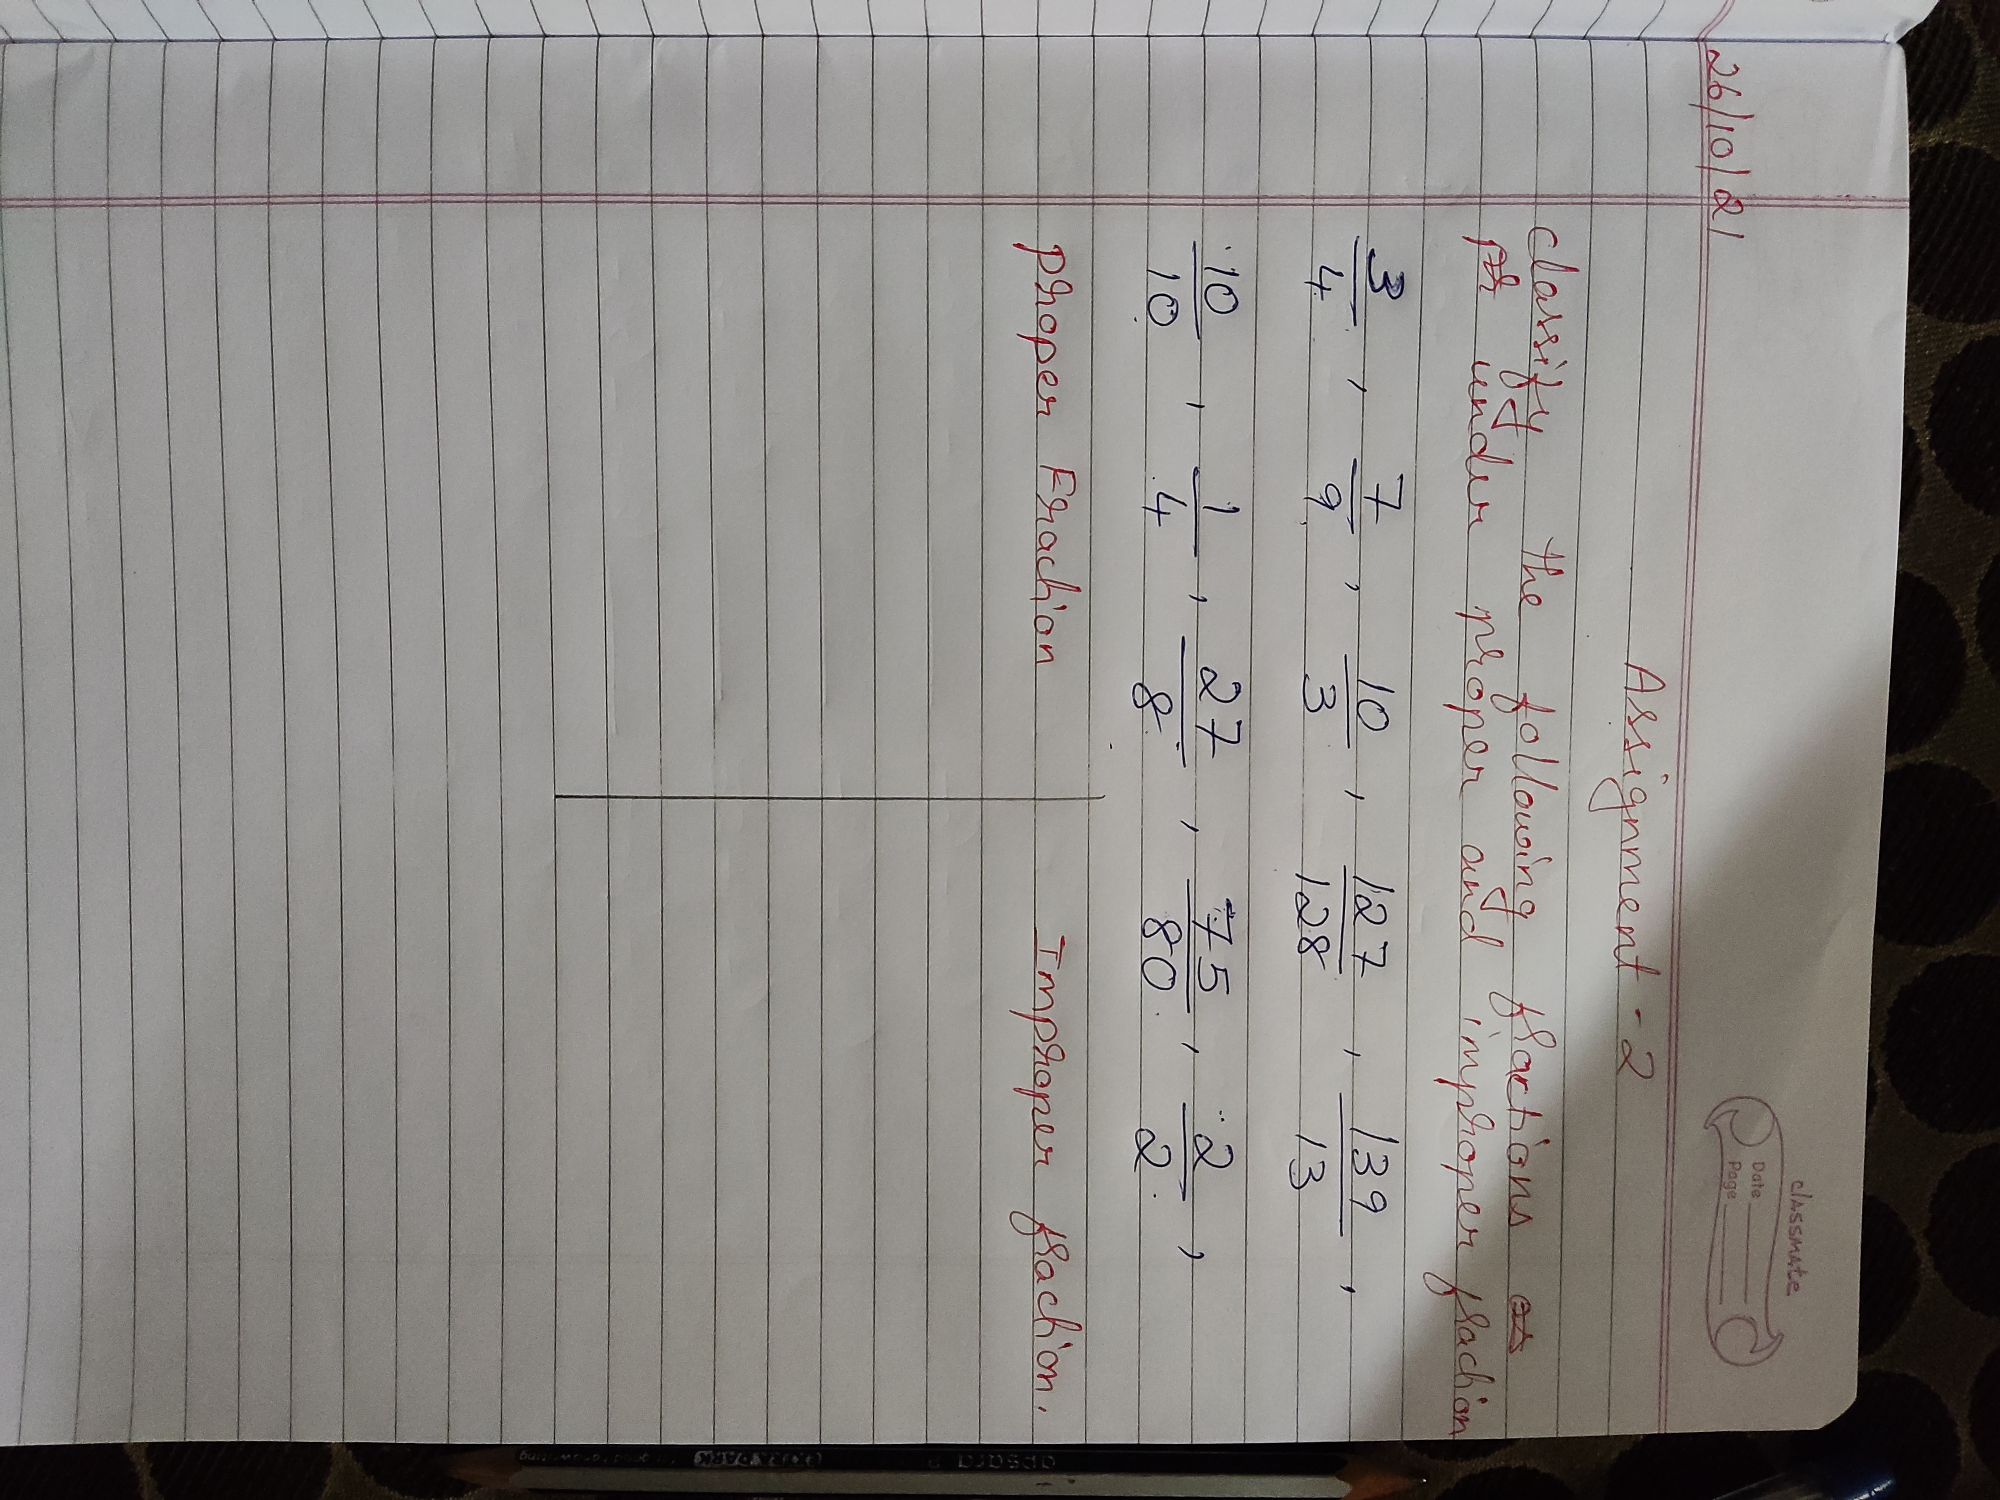 26/10/21
classmate
Date
Page
Assignment - 2
classify the following fractions as
under proper and improper fraction
3/4 , 7/9 , 10/3 , 127/128 , 139/13 ,
10/10 , 1/4 , 27/8 , 75/80 , 2/2 ,
Proper Fraction Improper fraction.
apsara